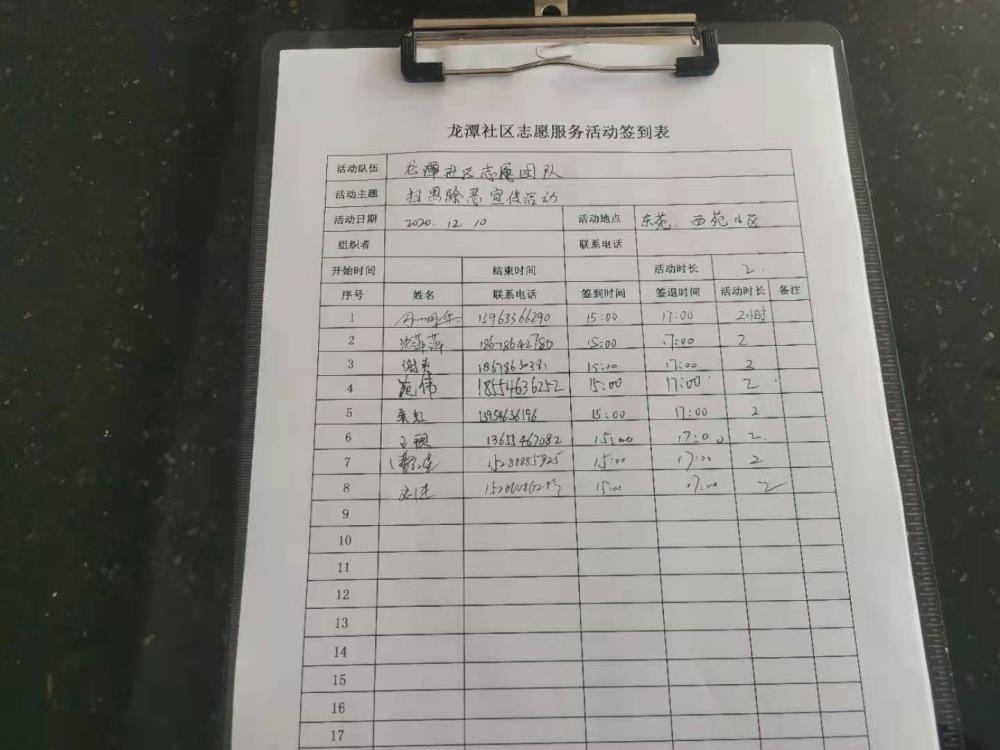 龙潭社区志愿服务活动签到表
活动队伍 龙潭社区志愿团队
活动主题 扫黑除恶宣传活动
活动日期 2020.12.10 活动地点 东苑、西苑小区
组织者 联系电话
开始时间 结束时间 活动时长 2.
序号 姓名 联系电话 签到时间 签退时间 活动时长 备注
1 13963366290 15:00 17:00 2小时
2 沈萍萍 18678642780 15:00 17:00 2
3 15:00 17:00 2
4 范伟 18554636252 15:00 17:00 2
5 15:00 17:00 2
6 13655467082 15:00 17:00 2
7 15288885925 15:00 17:00 2
8 15:00 17:00 2
9
10
11
12
13
14
15
16
17